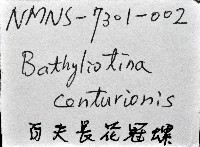 NMNS-7301-002
Bathyliotina
centurionis
百夫長花冠螺